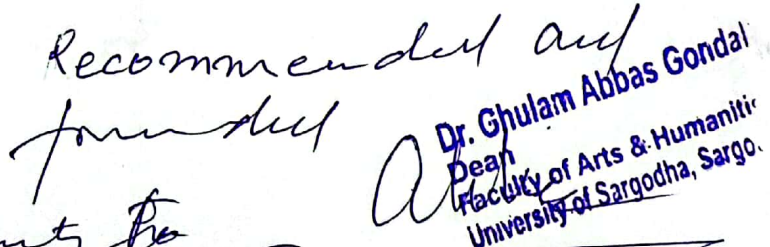 Recommended and
forwarded
Dr. Ghulam Abbas Gondal
Dean
Faculty of Arts & Humanitie
University of Sargodha, Sargo.